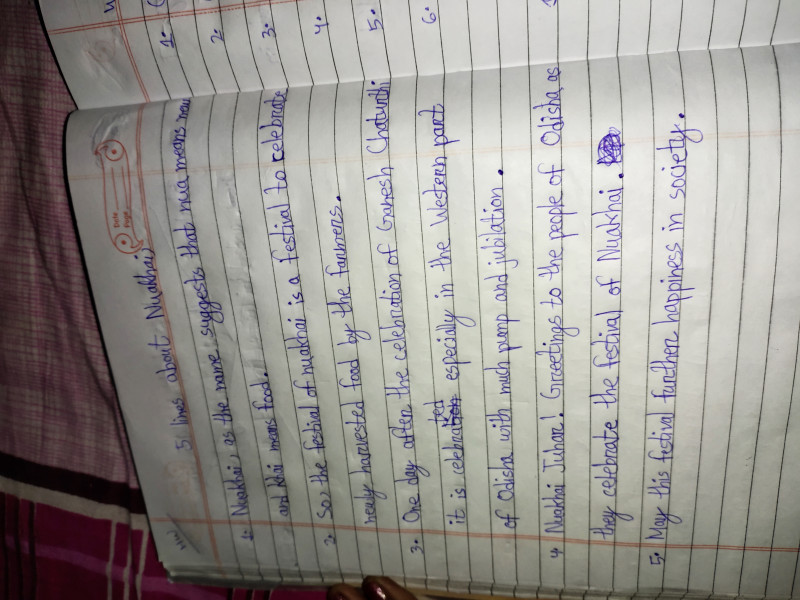 H.W
5 lines about Nuakhai
1. Nuakhai, as the name suggests that nua means new
and khai means food.
2. So, the festival of nuakhai is a festival to celebrate
newly harvested food by the farmers.
3. One day after the celebration of Ganesh Chaturthi
it is celebrated especially in the Western part
of Odisha with much pomp and jubilation.
4. Nuakhai Juhar! Greetings to the people of Odisha as
they celebrate the festival of Nuakhai.
5. May this festival further happiness in society.
Date
Page
1.
2.
3.
4.
5.
6.